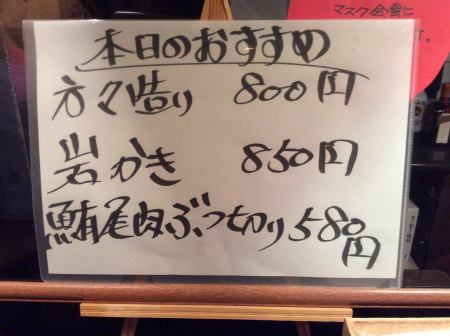 本日のおすすめ
方々造り 800円
岩かき 850円
鮪尾肉ぶつ切り580円
マスク会食に
す。